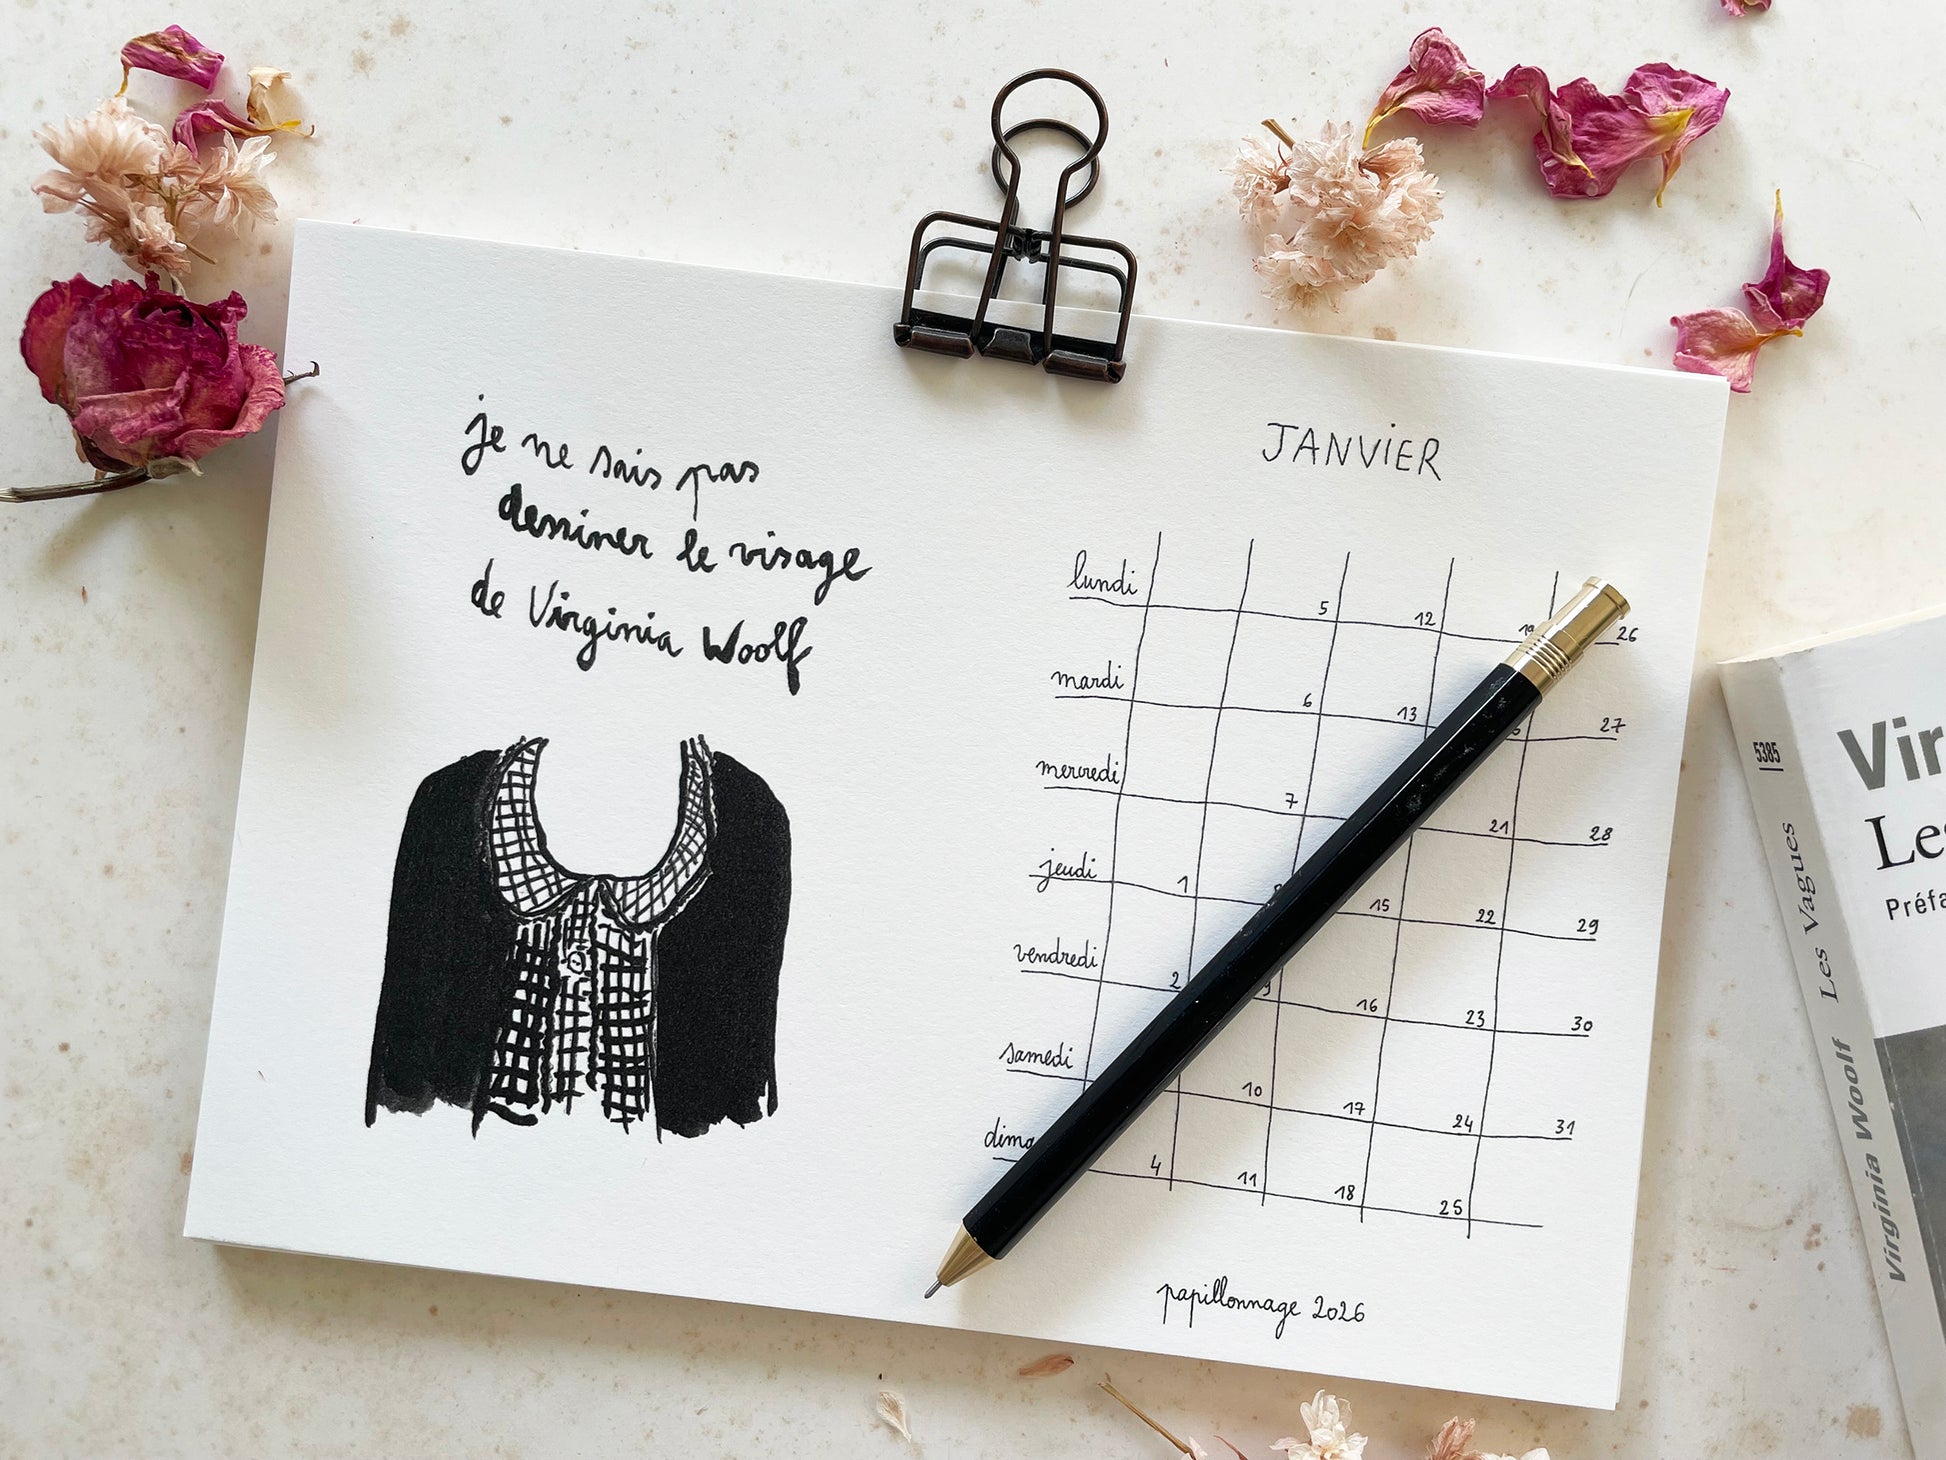 je ne sais pas
dessiner le visage
de Virginia Woolf
JANVIER
lundi 5 12 19 26
mardi 6 13 27
mercredi 7 21 28
jeudi 1 8 15 22 29
vendredi 2 9 16 23 30
samedi 10 17 24 31
4 11 18 25
papillonnage 2026
5385
Virginia Woolf Les Vagues
Vir
Les
Préfa